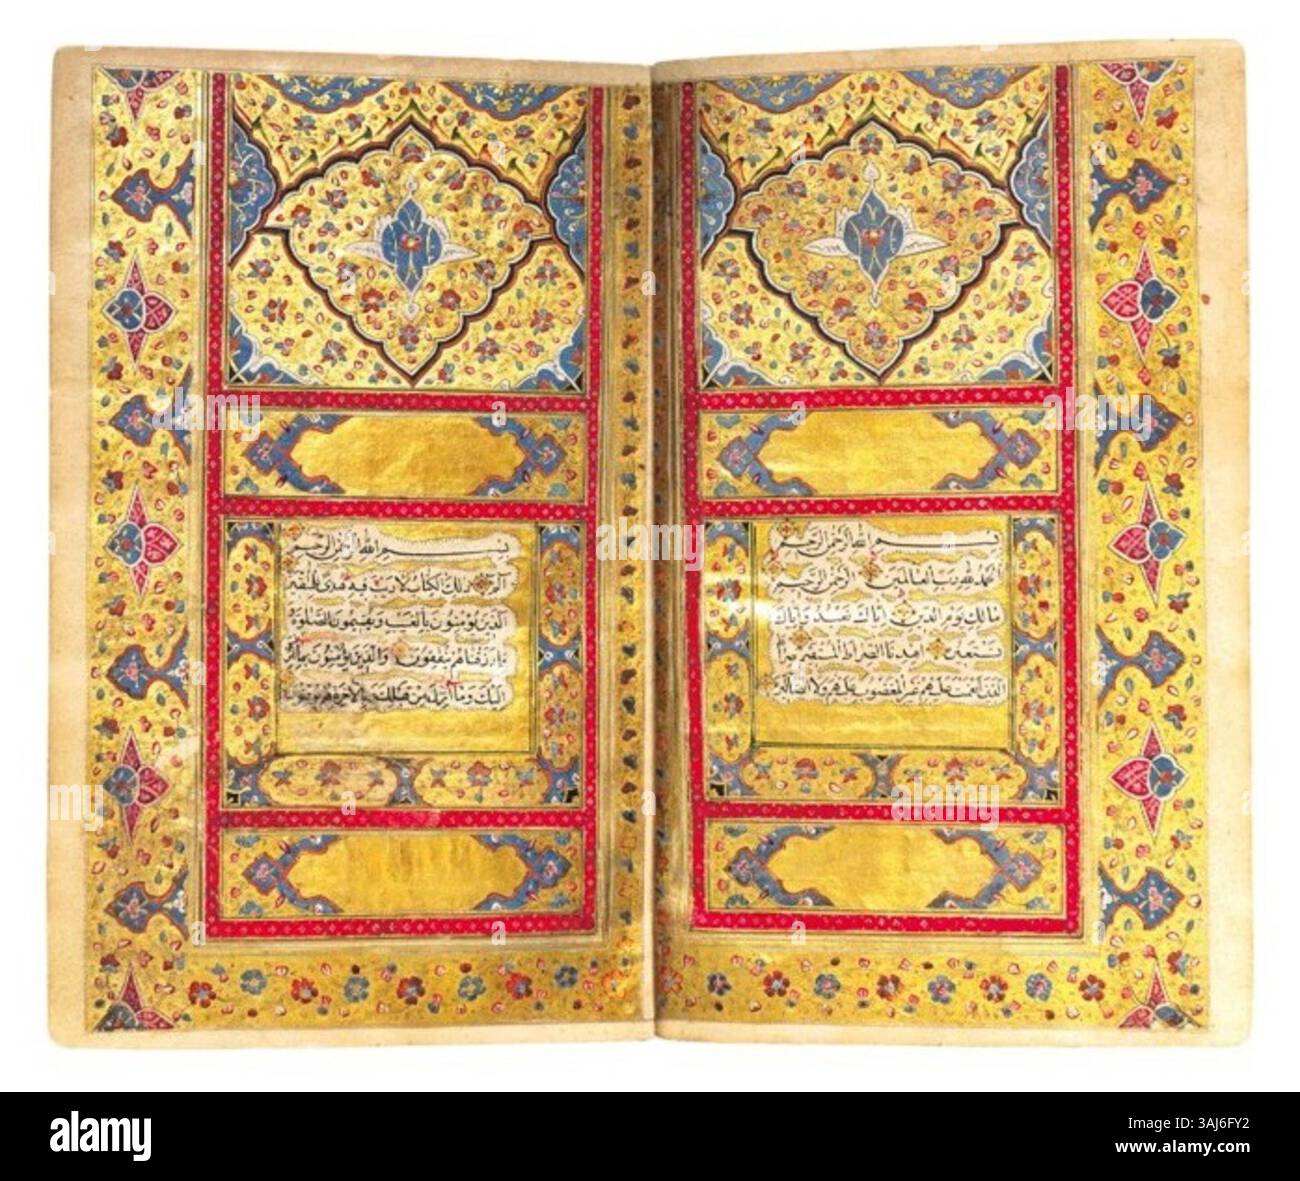 بسم الله الرحمن الرحيم
الحمد لله رب العالمين الرحمن الرحيم
مالك يوم الدين اياك نعبد واياك
نستعين اهدنا الصراط المستقيم صراط
الذين انعمت عليهم غير المغضوب عليهم ولا الضالين
بسم الله الرحمن الرحيم
الم ذلك الكتاب لا ريب فيه هدى للمتقين
الذين يؤمنون بالغيب ويقيمون الصلوة
ومما رزقناهم ينفقون والذين يؤمنون بما انزل
اليك وما انزل من قبلك وبالاخرة هم يوقنون
alamy
alamy
Image ID: 3AJ6FY2
www.alamy.com